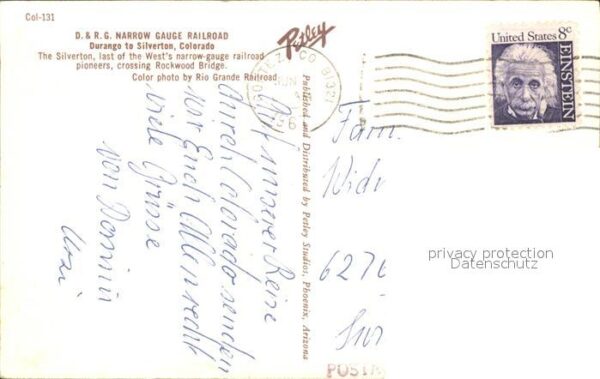 Col-131
D. & R. G. NARROW GAUGE RAILROAD
Durango to Silverton, Colorado
The Silverton, last of the West's narrow-gauge railroad
pioneers, crossing Rockwood Bridge.
Color photo by Rio Grande Railroad
Petley
Published and Distributed by Petley Studios, Phoenix, Arizona
CORTEZ CO 81321
JUN
United States 8c
EINSTEIN
Auf unserer Reise
durch Colorado senden
wir Euch Allen recht
viele Grüsse
von
Fam.
Widm
6276
privacy protection
Datenschutz
POST